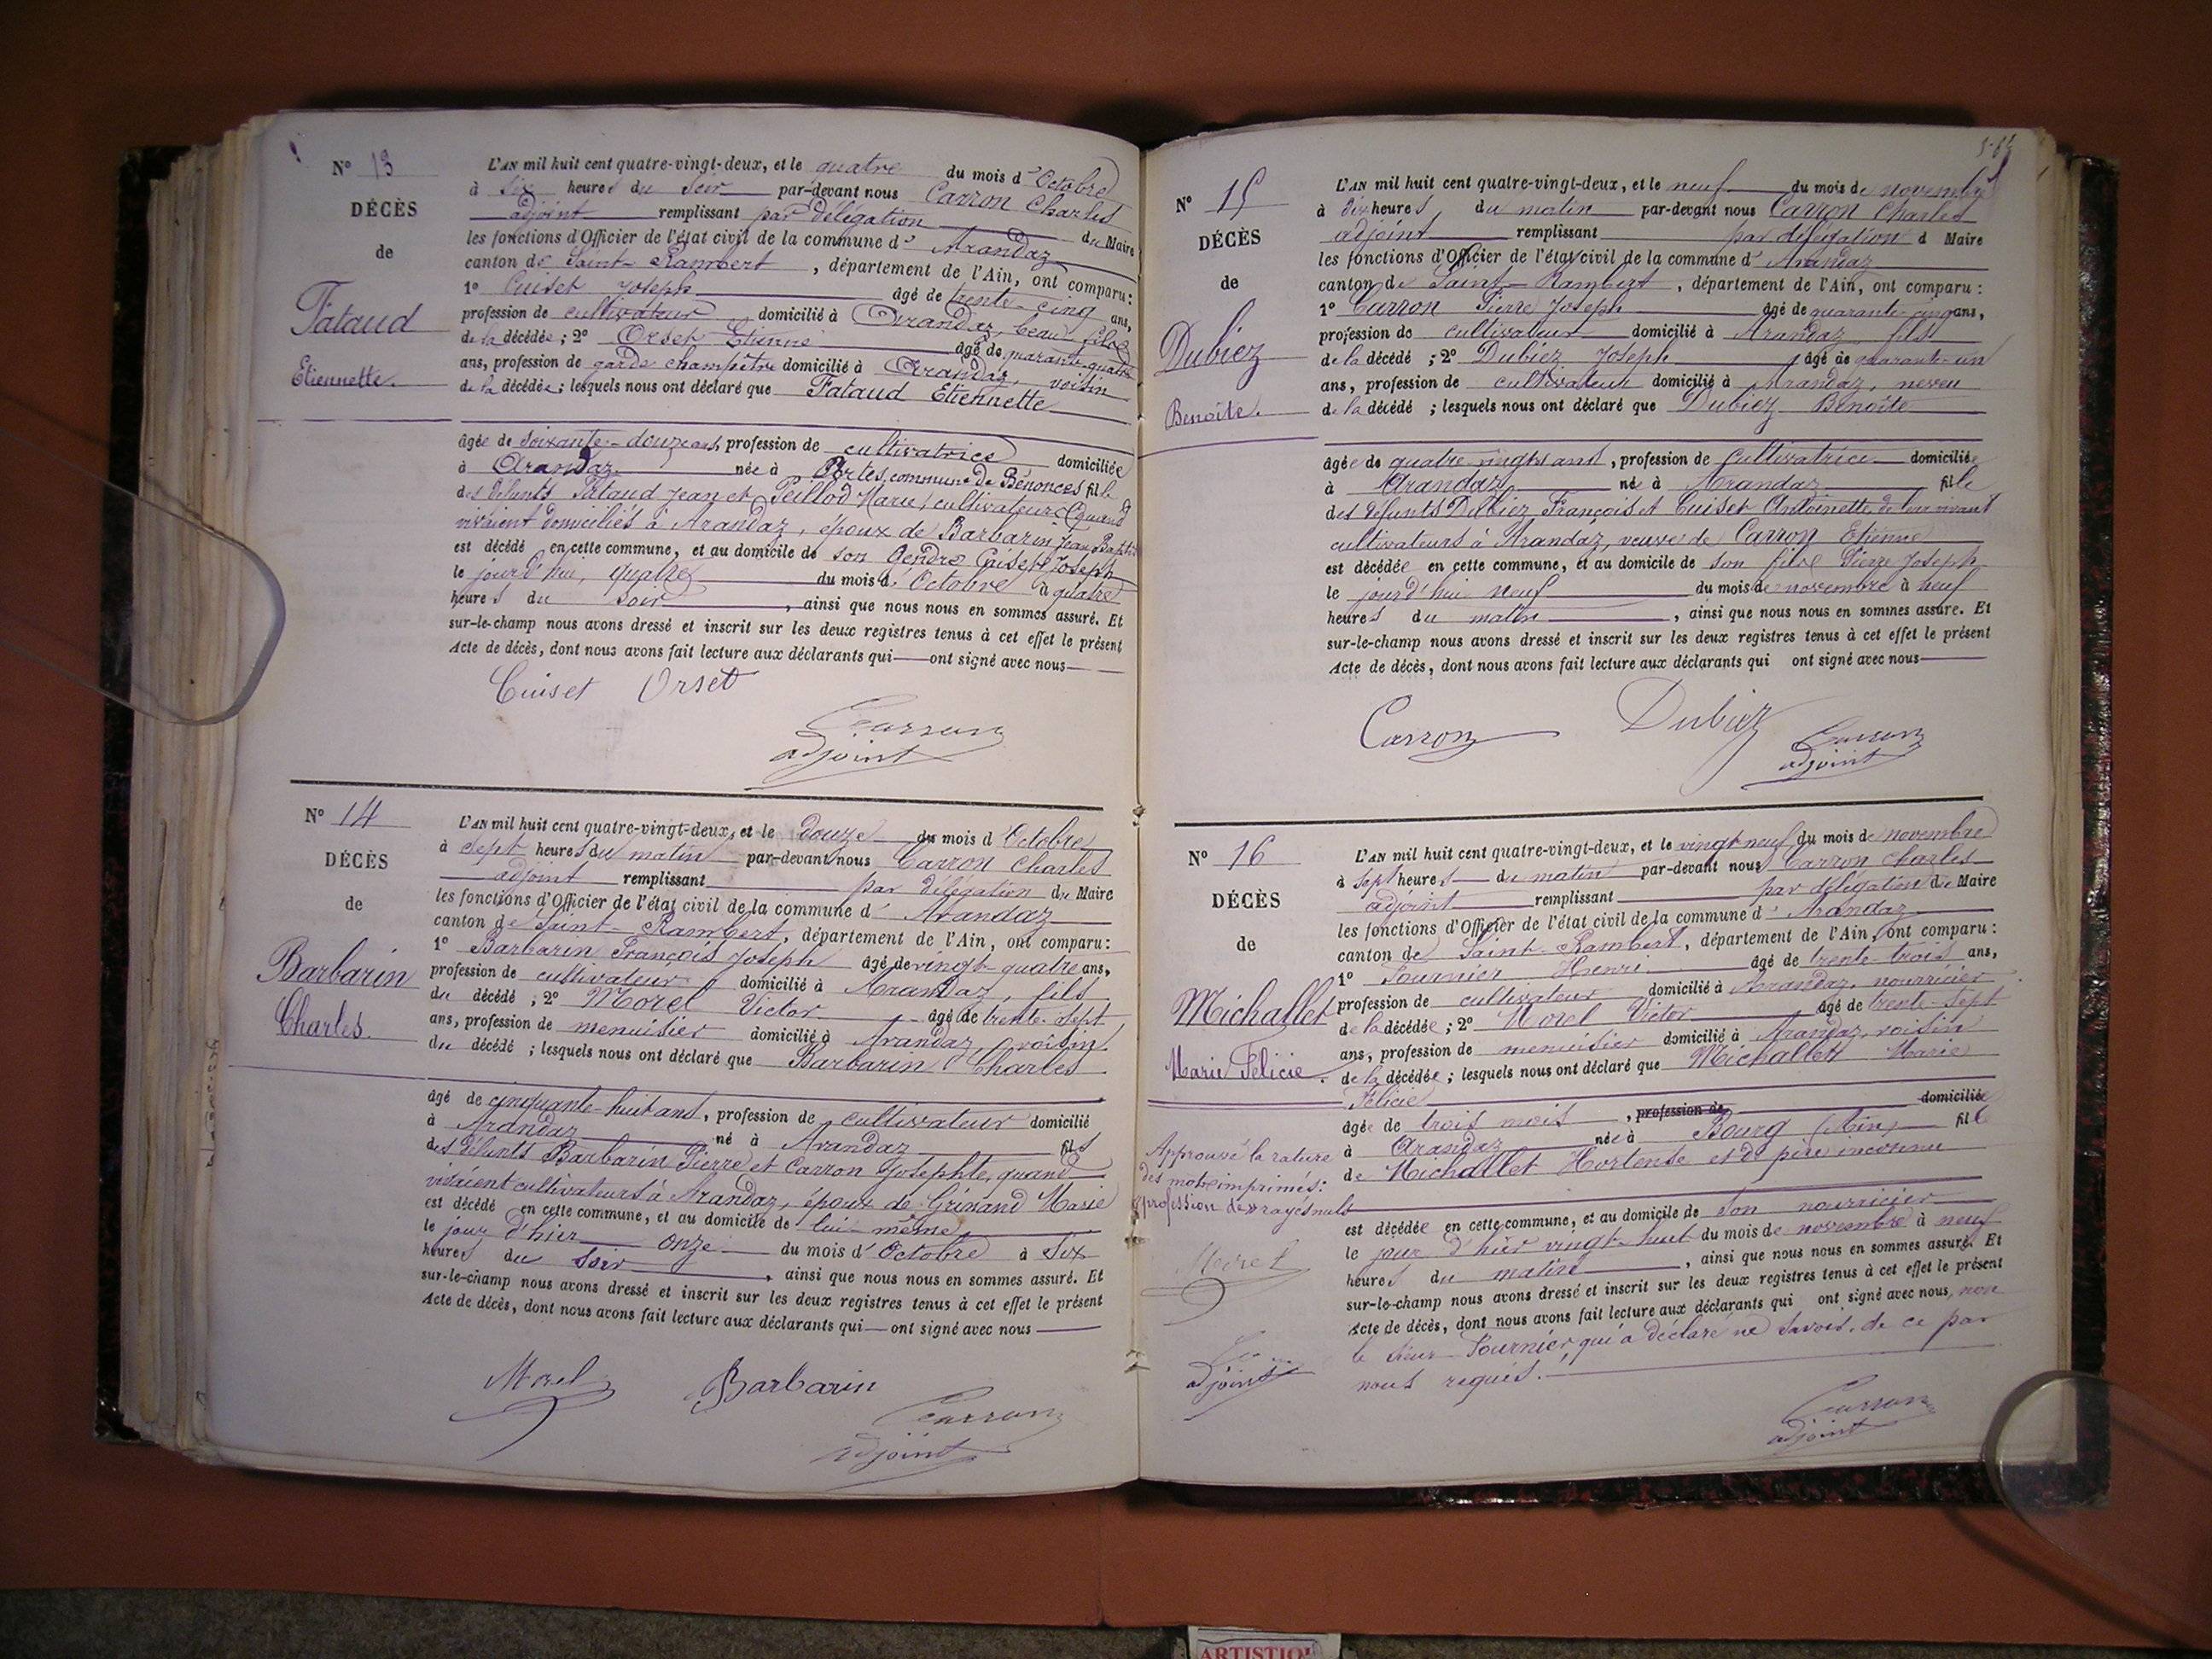 N° 13
DÉCÈS
de
Fataud
Etiennette.
L'AN mil huit cent quatre-vingt-deux, et le quatre du mois d'Octobre
à six heures du soir par-devant nous Carron Charles
adjoint remplissant par délégation du Maire
les fonctions d'Officier de l'état civil de la commune d' Arandaz
canton de Saint-Rambert, département de l'Ain, ont comparu:
1° Cuiset Joseph âgé de trente-cinq ans,
profession de cultivateur domicilié à Arandaz, beau-fils
de la décédée; 2° Orset Etienne âgé de quarante-quatre
ans, profession de garde champêtre domicilié à Arandaz, voisin
de la décédée; lesquels nous ont déclaré que Fataud Etiennette
âgée de soixante-douze ans, profession de cultivatrice domiciliée
à Arandaz née à Portes, commune de Bénonces fille
des défunts Fataud Jean et Peillod Marie, cultivateurs quand
vivaient domiciliés à Arandaz, époux de Barbarin Jean Baptiste
est décédé en cette commune, et au domicile de son Gendre Cuiset Joseph
le jourd'hui, quatre du mois d' Octobre à quatre
heures du soir, ainsi que nous nous en sommes assuré. Et
sur-le-champ nous avons dressé et inscrit sur les deux registres tenus à cet effet le présent
Acte de décès, dont nous avons fait lecture aux déclarants qui ont signé avec nous
Cuiset Orset
Carron
adjoint
N° 14
DÉCÈS
de
Barbarin
Charles.
L'AN mil huit cent quatre-vingt-deux, et le douze du mois d Octobre
à sept heures du matin par-devant nous Carron Charles
adjoint remplissant par délégation du Maire
les fonctions d'Officier de l'état civil de la commune d' Arandaz
canton de Saint-Rambert, département de l'Ain, ont comparu:
1° Barbarin François Joseph âgé de vingt-quatre ans,
profession de cultivateur domicilié à Arandaz, fils
du décédé; 2° Morel Victor âgé de trente-sept
ans, profession de menuisier domicilié à Arandaz, voisin
du décédé; lesquels nous ont déclaré que Barbarin Charles
âgé de cinquante-huit ans, profession de cultivateur domicilié
à Arandaz né à Arandaz fils
des défunts Barbarin Pierre et Carron Josephte, quand
vivaient cultivateurs à Arandaz, époux de Grinand Marie
est décédé en cette commune, et au domicile de lui-même
le jour d'hier onze du mois d' Octobre à six
heures du soir, ainsi que nous nous en sommes assuré. Et
sur-le-champ nous avons dressé et inscrit sur les deux registres tenus à cet effet le présent
Acte de décès, dont nous avons fait lecture aux déclarants qui ont signé avec nous
Morel Barbarin
Carron
adjoint
N° 15
DÉCÈS
de
Dubiez
Benoîte.
L'AN mil huit cent quatre-vingt-deux, et le neuf du mois de novembre
à dix heures du matin par-devant nous Carron Charles
adjoint remplissant par délégation d Maire
les fonctions d'Officier de l'état civil de la commune d' Arandaz
canton de Saint-Rambert, département de l'Ain, ont comparu:
1° Carron Pierre Joseph âgé de quarante-cinq ans,
profession de cultivateur domicilié à Arandaz fils
de la décédé; 2° Dubiez Joseph âgé de quarante-un
ans, profession de cultivateur domicilié à Arandaz, neveu
de la décédé; lesquels nous ont déclaré que Dubiez Benoîte
âgée de quatre-vingts ans, profession de cultivatrice domiciliée
à Arandaz née à Arandaz fille
des défunts Dubiez François et Cuiset Antoinette de leur vivant
cultivateurs à Arandaz, veuve de Carron Etienne
est décédée en cette commune, et au domicile de son fils Pierre Joseph
le jourd'hui neuf du mois de novembre à neuf
heures du matin, ainsi que nous nous en sommes assuré. Et
sur-le-champ nous avons dressé et inscrit sur les deux registres tenus à cet effet le présent
Acte de décès, dont nous avons fait lecture aux déclarants qui ont signé avec nous
Carron Dubiez
Carron
adjoint
N° 16
DÉCÈS
de
Michallet
Marie Félicie.
L'AN mil huit cent quatre-vingt-deux, et le vingt-neuf du mois de novembre
à sept heures du matin par-devant nous Carron Charles
adjoint remplissant par délégation du Maire
les fonctions d'Officier de l'état civil de la commune d' Arandaz
canton de Saint-Rambert, département de l'Ain, ont comparu:
1° Fournier Henri âgé de trente-trois ans,
profession de cultivateur domicilié à Arandaz, nourricier
de la décédée; 2° Morel Victor âgé de trente-sept
ans, profession de menuisier domicilié à Arandaz, voisin
de la décédée; lesquels nous ont déclaré que Michallet Marie
Félicie
âgée de trois mois, profession de domiciliée
à Arandaz née à Bourg (Ain) fille
de Michallet Hortense et de père inconnu
est décédée en cette commune, et au domicile de son nourricier
le jour d'hier vingt-huit du mois de novembre à neuf
heures du matin, ainsi que nous nous en sommes assuré. Et
sur-le-champ nous avons dressé et inscrit sur les deux registres tenus à cet effet le présent
Acte de décès, dont nous avons fait lecture aux déclarants qui ont signé avec nous, non
le sieur Fournier qui a déclaré ne savoir, de ce par
nous requis.
Approuvé la rature
des mots imprimés:
profession de rayés nuls
Morel
adjoint
Carron
adjoint